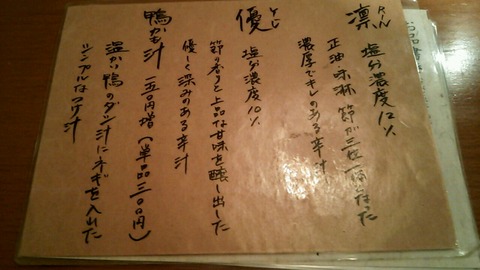 凛 リン 塩分濃度12%
正油 味淋 節が三位一体となった
濃厚でキレのある辛汁
優 ゆう 塩分濃度10%
節の香りと上品な甘味を醸し出した
優しく深みのある辛汁
鴨かも汁 一五〇円増(単品三〇〇円)
温かい鴨のダシ汁にネギを入れた
シンプルなつけ汁